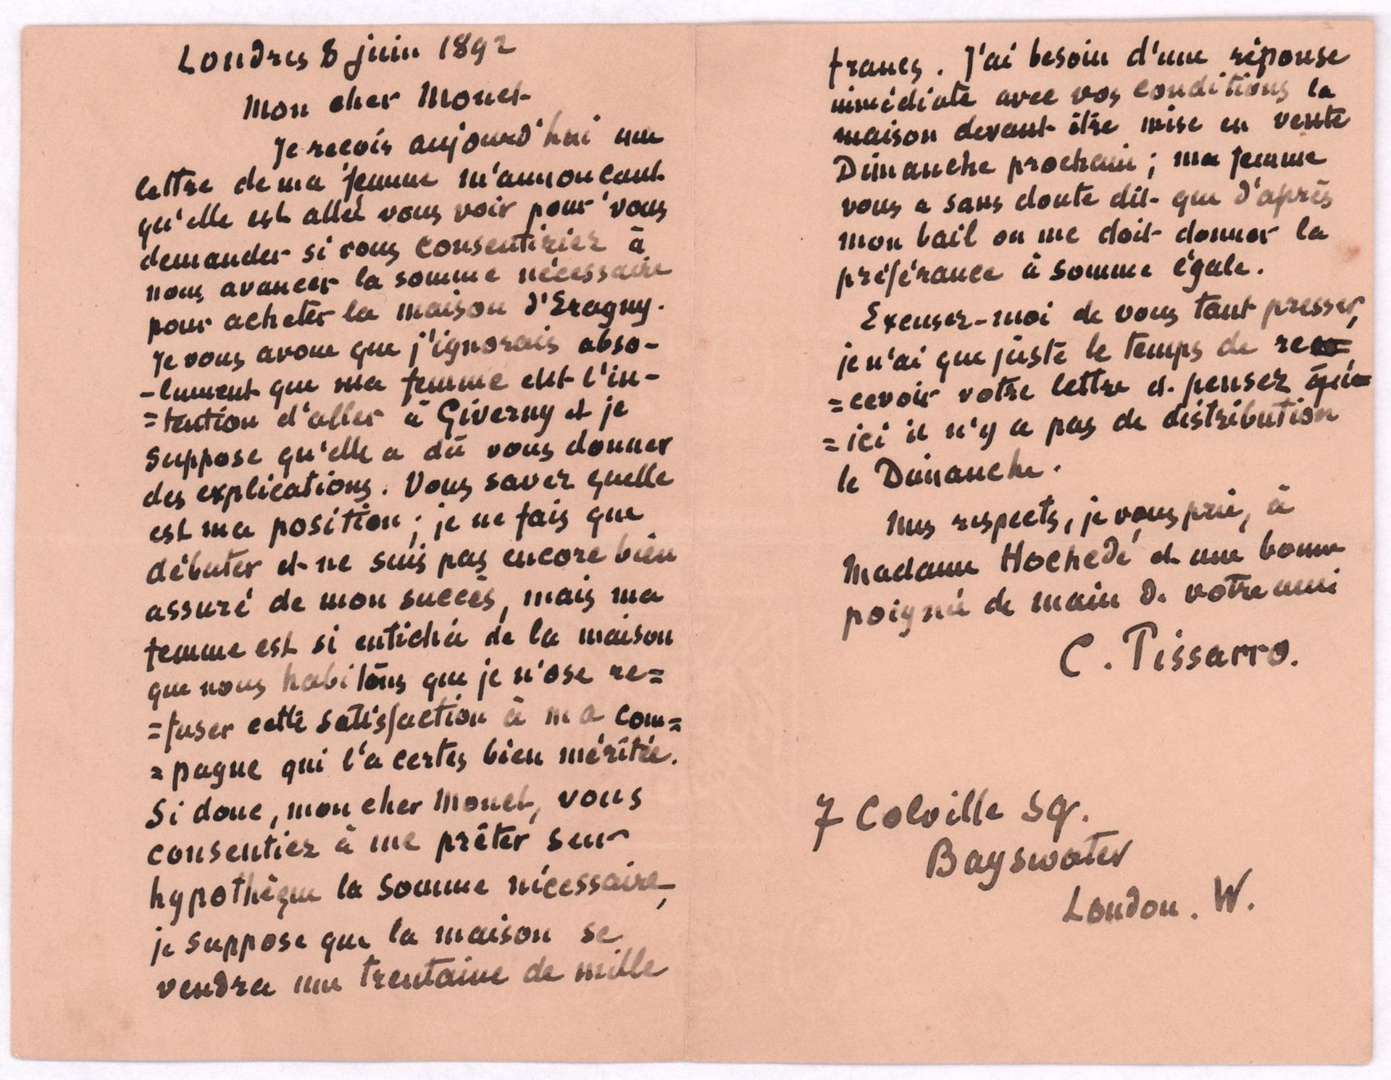 Londres 8 juin 1892
Mon cher Monet
Je reçois aujourd'hui une
lettre de ma femme m'annoncant
qu'elle est allée vous voir pour vous
demander si vous consentiriez à
nous avancer la somme nécessaire
pour acheter la maison d'Eragny.
Je vous avoue que j'ignorais abso-
-lument que ma femme eut l'in-
=tention d'aller à Giverny et je
suppose qu'elle a dû vous donner
des explications. Vous savez quelle
est ma position ; je ne fais que
débuter et ne suis pas encore bien
assuré de mon succès, mais ma
femme est si entichée de la maison
que nous habitons que je n'ose re=
=fuser cette satisfaction à ma com=
=pagne qui l'a certes bien méritée.
Si donc, mon cher Monet, vous
consentiez à me prêter sur
hypothèque la somme nécessaire,
je suppose que la maison se
vendra une trentaine de mille
francs. J'ai besoin d'une réponse
immédiate avec vos conditions la
maison devant être mise en vente
Dimanche prochain ; ma femme
vous a sans doute dit que d'après
mon bail on me doit donner la
préférance à somme égale.
Excusez-moi de vous tant presser,
je n'ai que juste le temps de re=
=cevoir votre lettre et pensez qu'i=
=ici il n'y a pas de distribution
le Dimanche.
Mes respects, je vous prie, à
Madame Hochedé et une bonne
poignée de main de votre ami
C. Pissarro.
7 Colville Sq.
Bayswater
London. W.